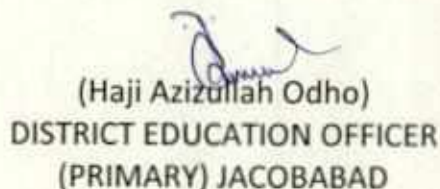 (Haji Azizullah Odho)
DISTRICT EDUCATION OFFICER
(PRIMARY) JACOBABAD